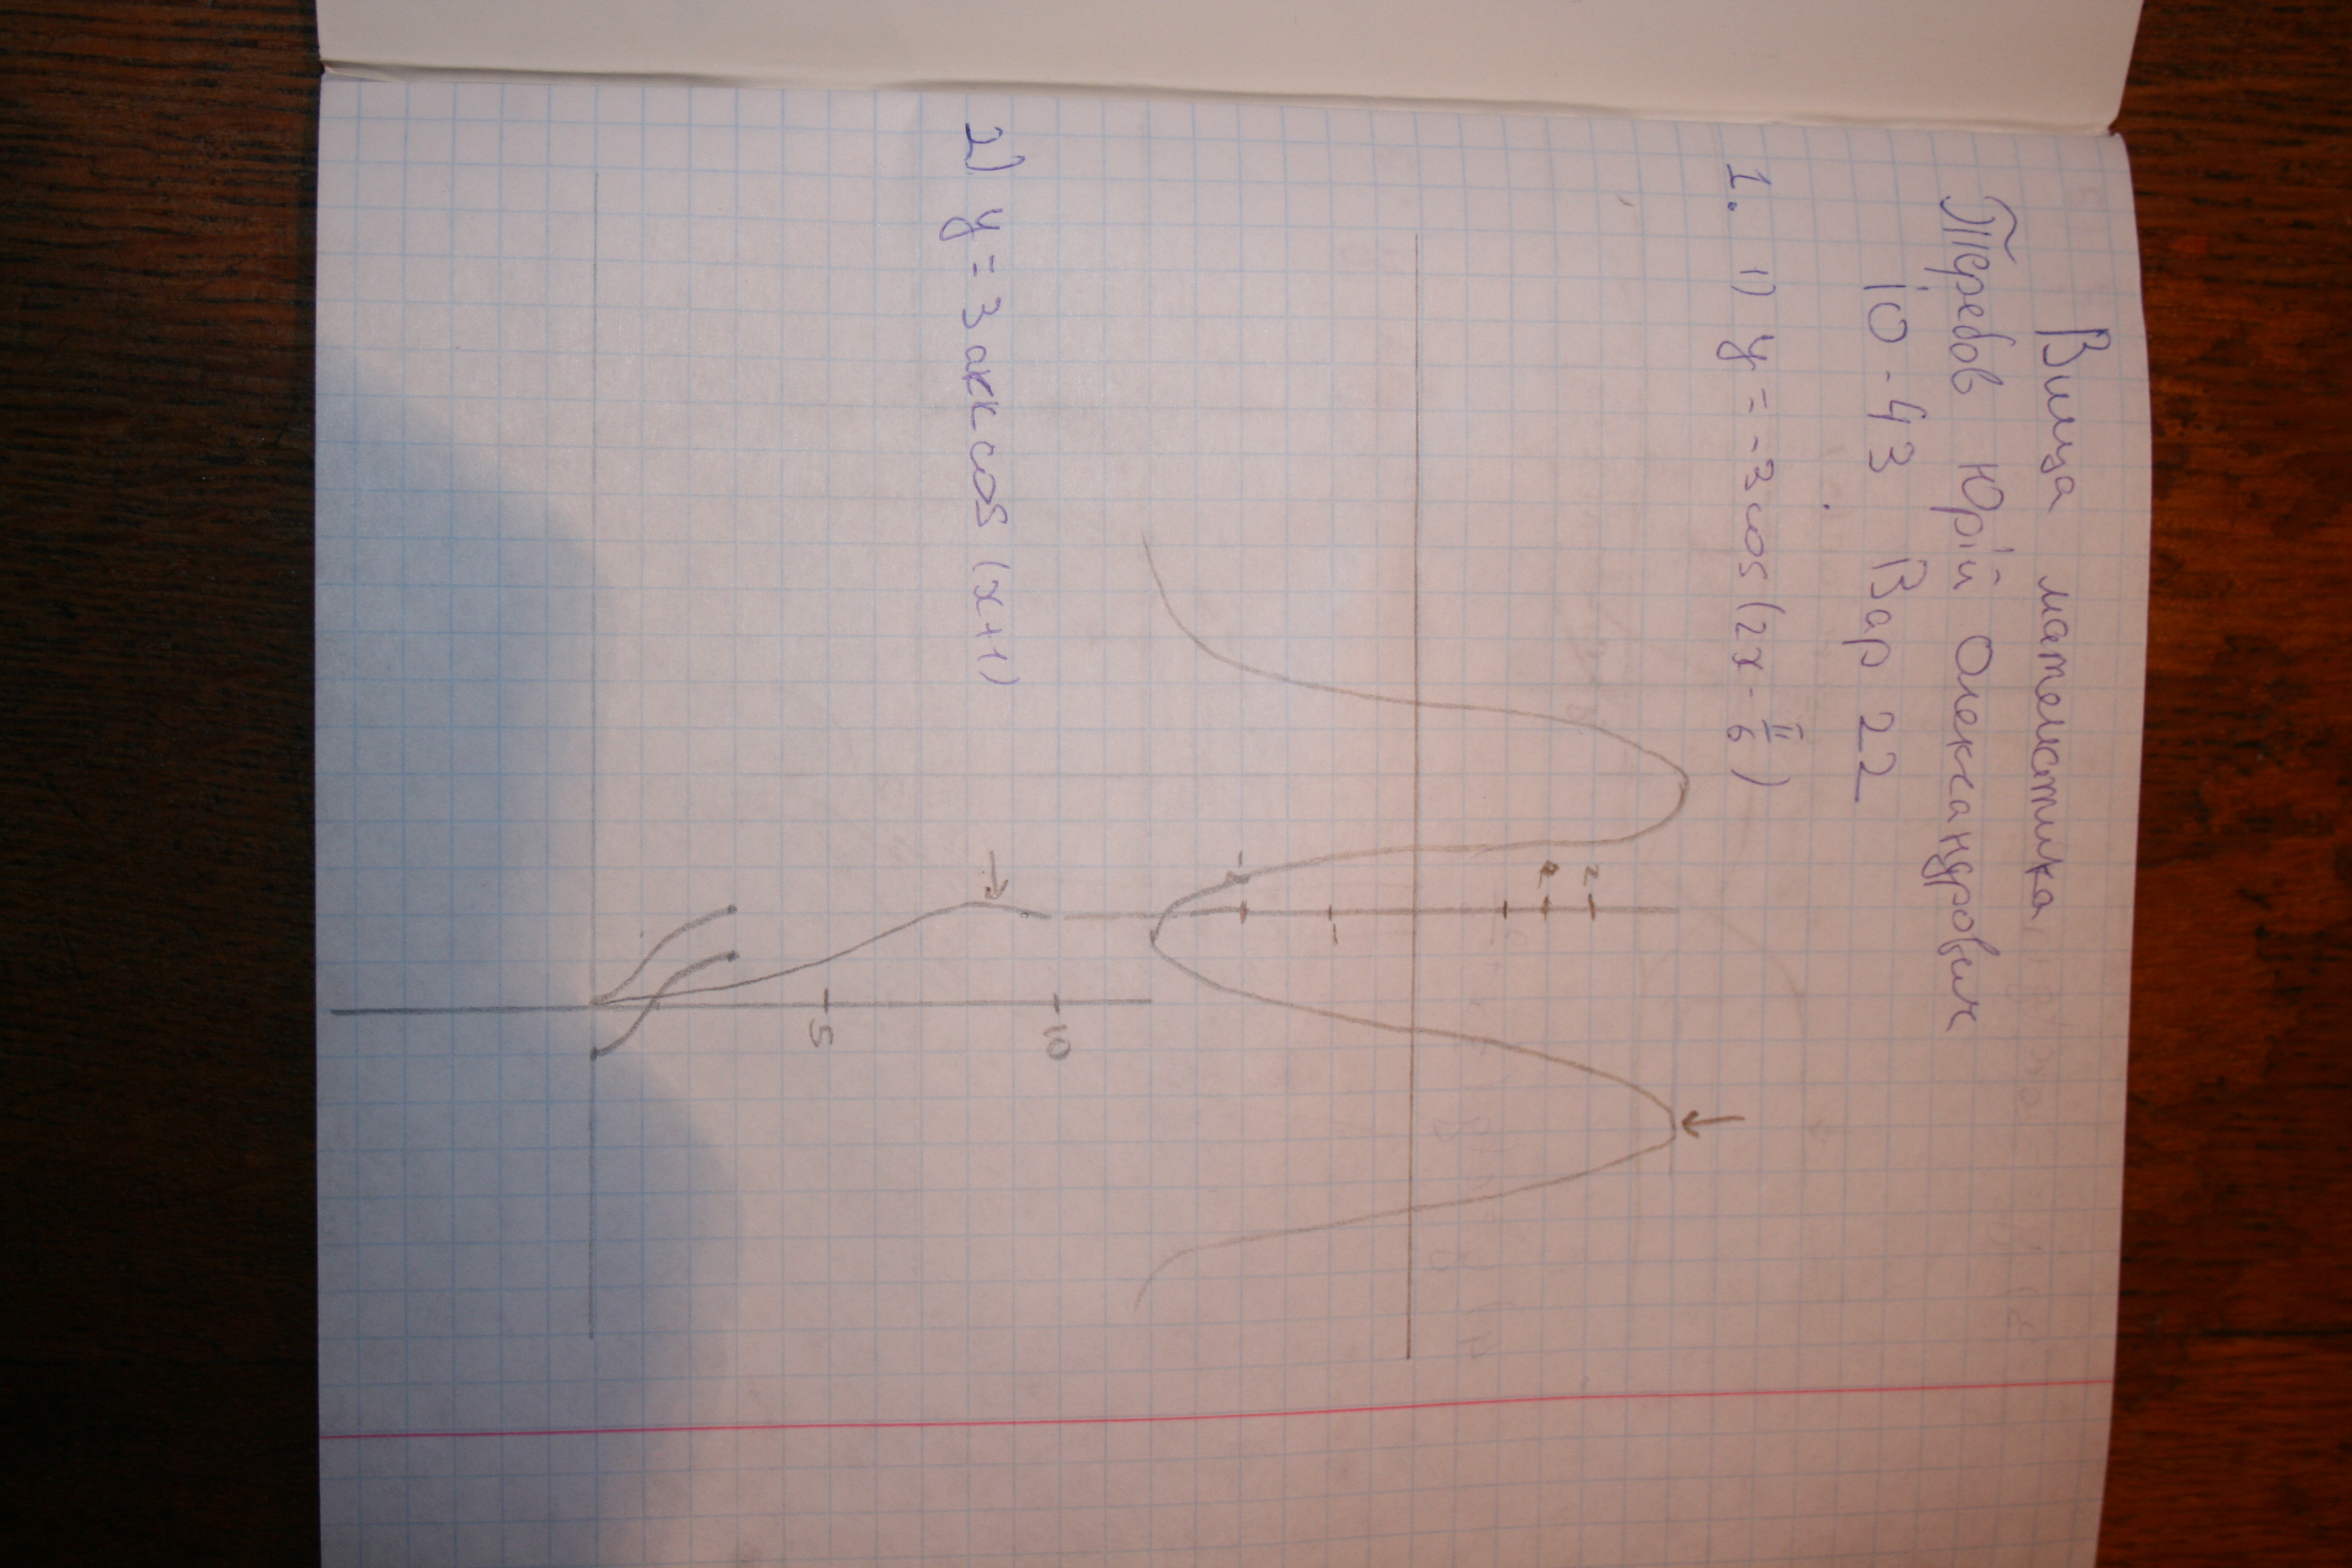 Вища математика
Теребов Юрій Олександрович
ІО-43 Вар 22
1. 1) y = -3cos(2x - π/6)
2
2
-
-2
10
2) y = 3 arccos (x+1)
5